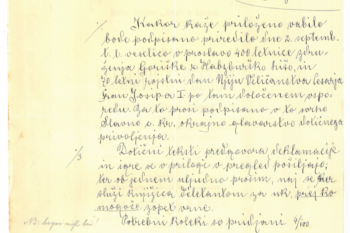 1/ Kakor kaže priloženo vabilo
bode podpisano priredilo dne 2. septemb.
t. l. veselico v proslavo 400 letnice zdru-
ženja Goriške s Habsburško hišo in
70 letni rojstni dan Njga Veličanstva Cesarja
Fran Josipa I po tam določenem vspo-
redu. Za to prosi podpisano v to svrho
Slavno c. kr. okrajno glavarstvo dotičnega
privoljenja.
Dotični teksti predgovora, deklamacije
in igre se v prilogi v pregled pošiljajo;
ter ob jednem uljudno prosim, naj se ker
služi knjižica diletantom za uk, prej ko
mogoče zopet vrne.
Potrebni koleki so pridjani